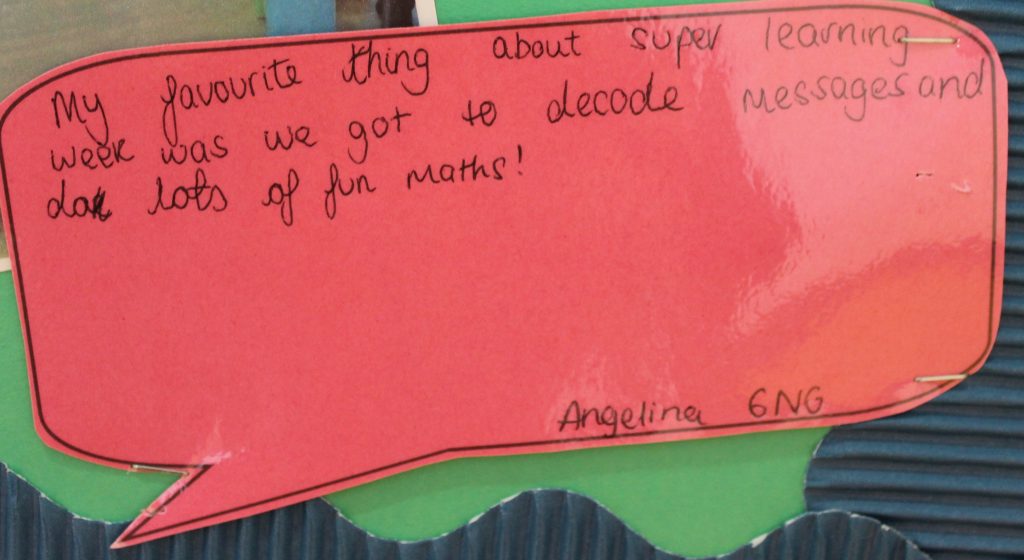 My favourite thing about super learning
week was we got to decode messages and
lots of fun maths!
Angelina 6NG